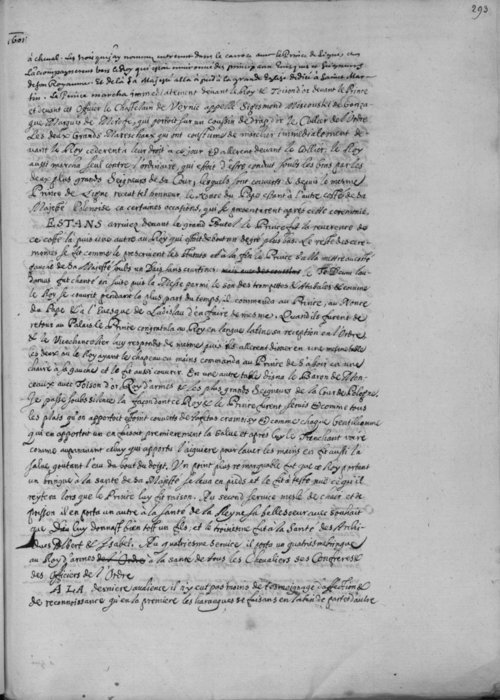 293
1601
à cheval. Les trois qui j'ay nommez entrerent dans le carosse avec le Prince de Ligne, en
la compagnerent vers le Roy qui estoit environné des principaux Evesques et Seigneurs
de son Royaume et de là sa Majesté alla à pied à la grande Eglise dediée à Saint Mar-
tin. Le Prince marcha immediatement devant le Roy & Toison d'or devant le Prince
et devant cet Officier le Chastelain de Vernic appellé Sigismond Mirkouski de Gonza-
gue Marquis de Mirow, qui portoit sur un coussin de drap d'or le Collier de l'Ordre
Les deux Grands Mareschaux qui ont coustume de marcher immediatement de-
vant le Roy cederent à leur droit à ce jour & allerent devant le Collier, le Roy
aussi marcha seul contre l'ordinaire, qui estoit d'estre conduit soubs les bras par les
deux plus grands Seigneurs de sa Cour, lesquels sont couverts & depuis le mesme
Prince de Ligne receut tel honneur le Nonce du Pape estant à l'autre costé de sa
Majesté Polonoise en certaines occasions, qui se presenterent après cette ceremonie.
ESTANS arrivez devant le grand Autel le Prince fit la reverence de
ce costé là puis une autre au Roy qui estoit debout un degré plus bas. Le reste des cere-
monies se fit comme le prescrivent les Statuts et à la fin le Prince s'alla mettre au costé
gauche de sa Majesté soubs un Dais sans courtines le Te Deum lau-
damus fut chanté en suite puis la Messe parmi le son des trompettes & Atabales & comme
le Roy se couvrit pendant la plus part du temps, il commanda au Prince, au Nonce
du Pape & à l'Evesque de Ladislau d'en faire de mesme. Quand ils furent de
retour au Palais le Prince congratula au Roy en langue latine sa reception en l'Ordre
& le Vicechancelier luy respondit de mesme puis ils allerent disner en une mesme table
les deux où le Roy ayant le chapeau en mains commanda au Prince de s'assoir en une
chaire à sa gauche et le fit aussi couvrir. En une autre table disna le Baron de Mon-
ceaux avec Toison d'or, Roy d'armes & les plus grands Seigneurs de la Cour de Pologne.
Je passe soubs silence la façon dont ce Roy & le Prince furent servis & comme tous
les plats qu'on apportoit estoient couverts de taffetas cramoisy & comme chaque Gentilhomme
qui en apportoit un en faisoit premierement la salve et après luy le Trenchant voire
comme auparavant celuy qui apporta l'aiguiere pour laver les mains en fit aussi la
salve goutant l'eau du bout du doigt. Un point plus remarquable fut que le Roy portant
un brinque à la santé de sa Majesté se leva en pieds et le fit à teste nue ce qu'il
reytera lors que le Prince luy fit raison. Au second service meslé de chair et de
poisson il en porta un autre à la santé de la Reyne sa belle soeur avec souhait
que Dieu luy donnast bien tost un fils, et le troisiesme fut à la santé des Archi-
ducs Albert & Isabel. Au quatriesme service il porta un quatriesme brinque
au Roy d'armes à la santé de tous les Chevaliers ses Confreres &
des Officiers de l'Ordre.
A LA derniere audience il n'y eut pas moins de tesmoignage d'affection &
de reconnoissance qu'en la premiere les harangues se faisans en latin de part & d'autre